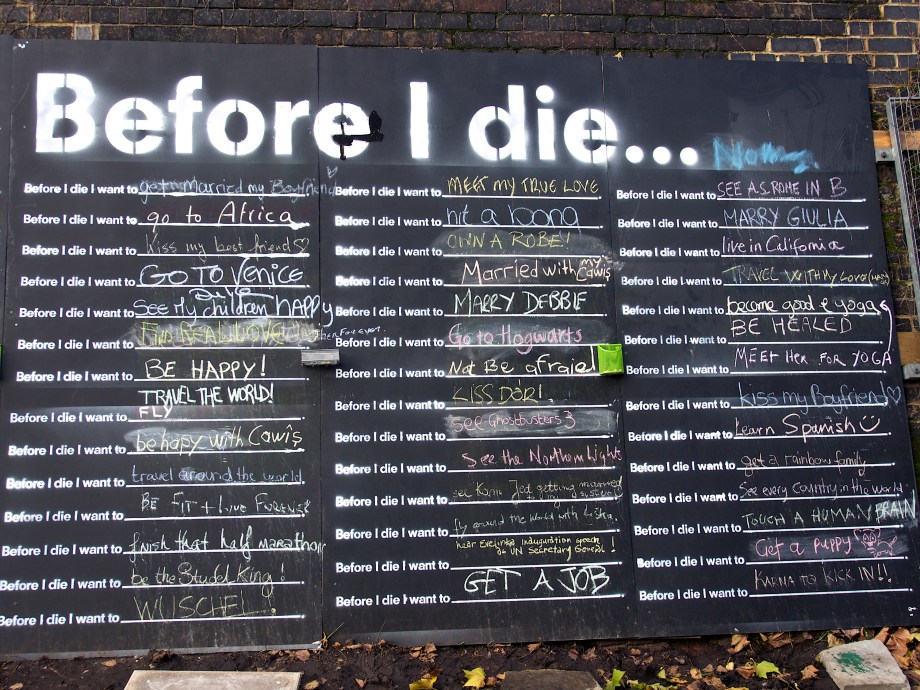 Before I die...
Before I die I want to get Married my Boyfriend
Before I die I want to go to Africa
Before I die I want to kiss my best friend ♡
Before I die I want to GO TO VENICE
Before I die I want to SEE My children happy
Before I die I want to REAL LOVE
Before I die I want to BE HAPPY!
TRAVEL THE WORLD!
Before I die I want to FLY
Before I die I want to be hapy with Cawîs
Before I die I want to travel around the world
Before I die I want to BE FIT + LIVE FOREVER
Before I die I want to finish that half marathon
Before I die I want to be the Studel King!
Before I die I want to WUSCHEL.
Before I die I want to MEET MY TRUE LOVE
Before I die I want to hit a bong
Before I die I want to OWN A ROBE!
Before I die I want to Married with my Cawîs
Before I die I want to MARRY DEBBIE
Before I die I want to Go to Hogwarts
Before I die I want to Not Be afraid
Before I die I want to KISS DORI
Before I die I want to see Ghostbusters 3
Before I die I want to See the Northern Lights
Before I die I want to see getting married
Before I die I want to fly around the world with
Before I die I want to hear inauguration speech as UN Secretary General!
Before I die I want to GET A JOB
Before I die I want to SEE A.S. ROME IN B
Before I die I want to MARRY GIULIA
Before I die I want to live in California
Before I die I want to TRAVEL WITH MY LOVE
Before I die I want to become good @ yoga
Before I die I want to BE HEALED
Before I die I want to MEET HER FOR YOGA
Before I die I want to kiss my Boyfriend ♡
Before I die I want to Learn Spanish
Before I die I want to get a rainbow family
Before I die I want to See every country in the world
Before I die I want to TOUCH A HUMAN BRAIN
Before I die I want to Get a puppy
Before I die I want to KARMA TO KICK IN!!